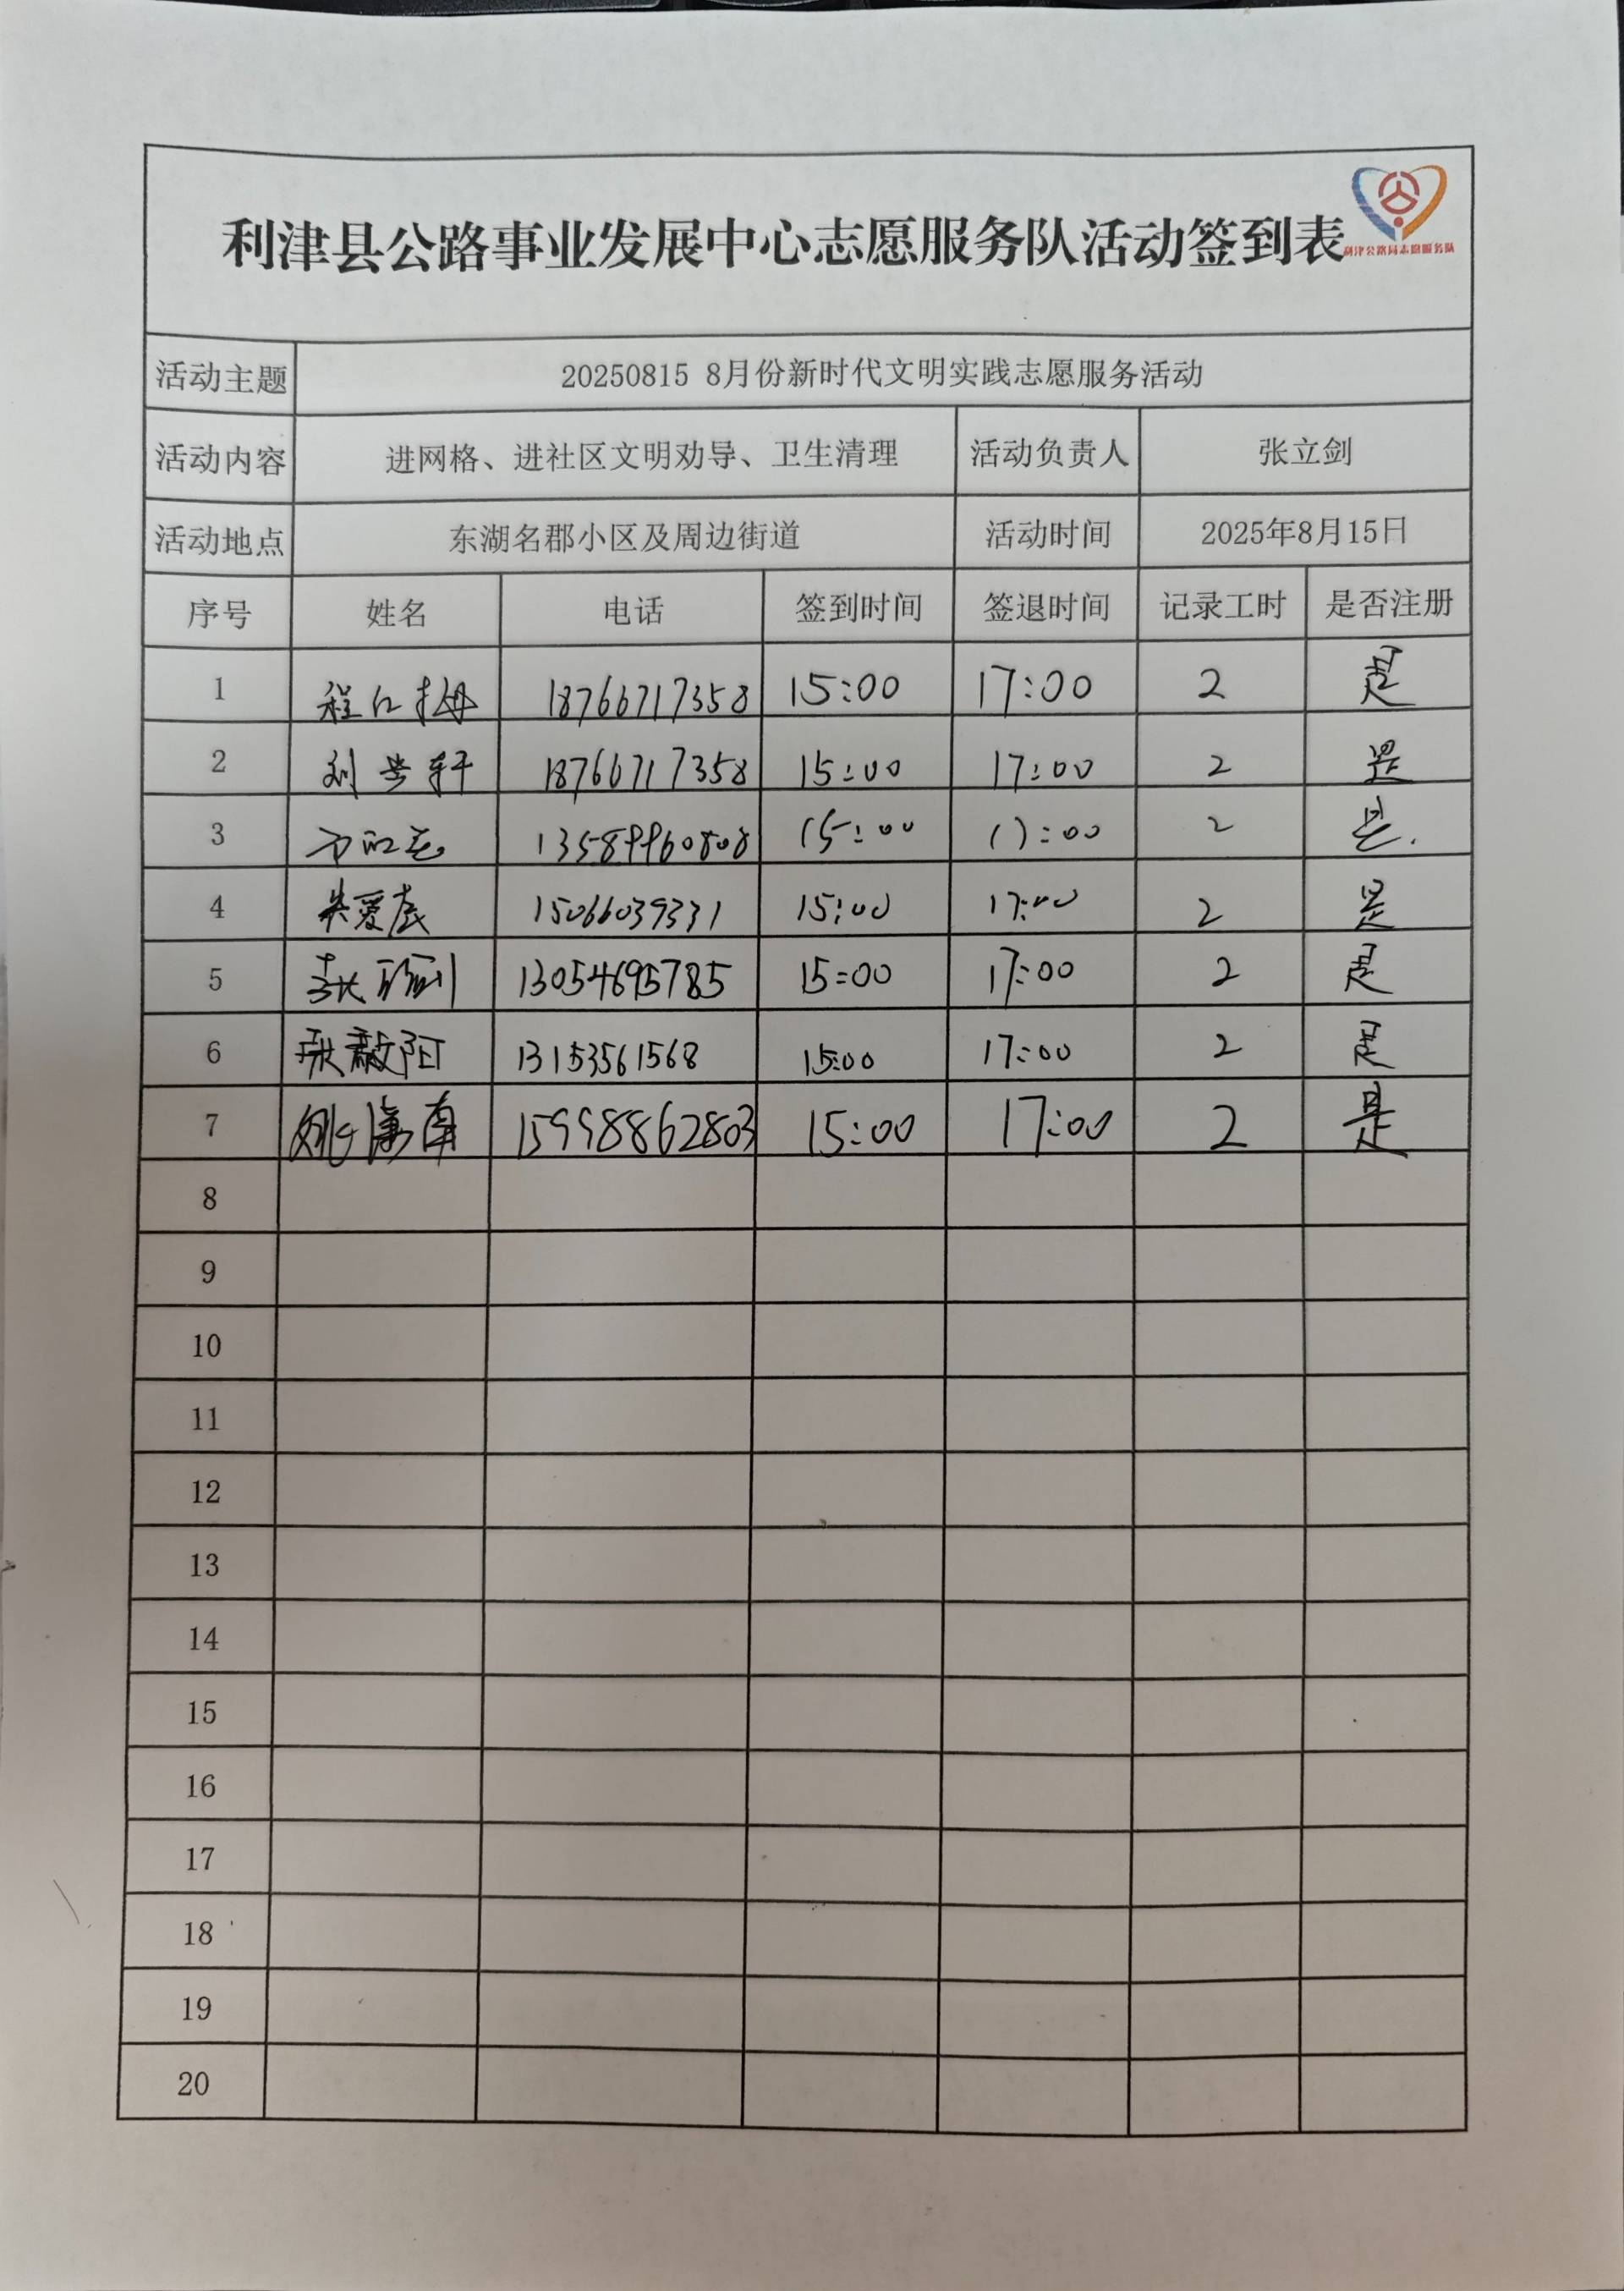 利津县公路事业发展中心志愿服务队活动签到表
利津公路局志愿服务队
活动主题 20250815 8月份新时代文明实践志愿服务活动
活动内容 进网格、进社区文明劝导、卫生清理 活动负责人 张立剑
活动地点 东湖名郡小区及周边街道 活动时间 2025年8月15日
序号 姓名 电话 签到时间 签退时间 记录工时 是否注册
1 18766717358 15:00 17:00 2 是
2 18766717358 15:00 17:00 2 是
3 13589960808 15:00 17:00 2 是.
4 15066039331 15:00 17:00 2 是
5 13054695785 15:00 17:00 2 是
6 13153561568 15:00 17:00 2 是
7 15998862803 15:00 17:00 2 是
8
9
10
11
12
13
14
15
16
17
18
19
20